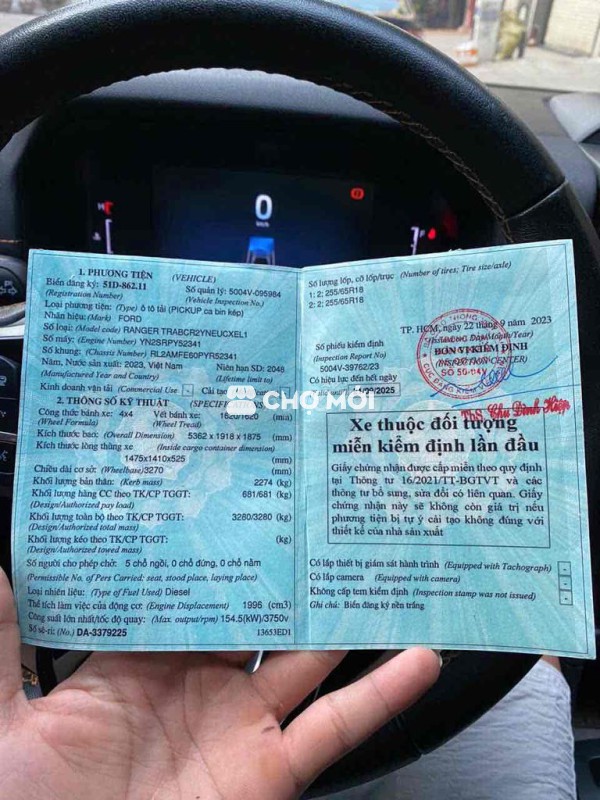 0
km/h
H
F
1. PHƯƠNG TIỆN (VEHICLE)
Biển đăng ký: 51D-862.11 Số quản lý: 5004V-095984
(Registration Number) (Vehicle Inspection No.)
Loại phương tiện: (Type) ô tô tải (PICKUP ca bin kép)
Nhãn hiệu: (Mark) FORD
Số loại: (Model code) RANGER TRABCR2YNEUCXEL1
Số máy: (Engine Number) YN2SRPY52341
Số khung: (Chassis Number) RL2AMFE60PYR52341
Năm, Nước sản xuất: 2023, Việt Nam Niên hạn SD: 2048
(Manufactured Year and Country) (Lifetime limit to)
Kinh doanh vận tải (Commercial Use) - Cải tạo
2. THÔNG SỐ KỸ THUẬT (SPECIFI
Công thức bánh xe: 4x4 Vết bánh xe: 1620/1620 (mm)
(Wheel Formula) (Wheel Tread)
Kích thước bao: (Overall Dimension) 5362 x 1918 x 1875 (mm)
Kích thước lòng thùng xe (Inside cargo container dimension)
1475x1410x525 (mm)
Chiều dài cơ sở: (Wheelbase) 3270 (mm)
Khối lượng bản thân: (Kerb mass) 2274 (kg)
Khối lượng hàng CC theo TK/CP TGGT: 681/681 (kg)
(Design/Authorized pay load)
Khối lượng toàn bộ theo TK/CP TGGT: 3280/3280 (kg)
(Design/Authorized total mass)
Khối lượng kéo theo TK/CP TGGT: (kg)
(Design/Authorized towed mass)
Số người cho phép chở: 5 chỗ ngồi, 0 chỗ đứng, 0 chỗ nằm
(Permissible No. of Pers Carried: seat, stood place, laying place)
Loại nhiên liệu: (Type of Fuel Used) Diesel
Thể tích làm việc của động cơ: (Engine Displacement) 1996 (cm3)
Công suất lớn nhất/tốc độ quay: (Max. output/rpm) 154.5(kW)/3750v
Số sê-ri: (No.) DA-3379225 13653ED1
Số lượng lốp, cỡ lốp/trục (Number of tires; Tire size/axle)
1: 2; 255/65R18
2: 2; 255/65R18
TP. HCM, ngày 22 tháng 9 năm 2023
Số phiếu kiểm định ĐƠN VỊ KIỂM ĐỊNH
(Inspection Report No)
5004V-39762/23 SỐ 50-04V
Có hiệu lực đến hết ngày
ThS Chu Đình Hiệp
CHỢ MỚI
Xe thuộc đối tượng
miễn kiểm định lần đầu
Giấy chứng nhận được cấp miễn theo quy định
tại Thông tư 16/2021/TT-BGTVT và các
thông tư bổ sung, sửa đổi có liên quan. Giấy
chứng nhận này sẽ không còn giá trị nếu
phương tiện bị tự ý cải tạo không đúng với
thiết kế của nhà sản xuất
Có lắp thiết bị giám sát hành trình (Equipped with Tachograph) -
Có lắp camera (Equipped with camera) -
Không cấp tem kiểm định (Inspection stamp was not issued) -
Ghi chú: Biển đăng ký nền trắng